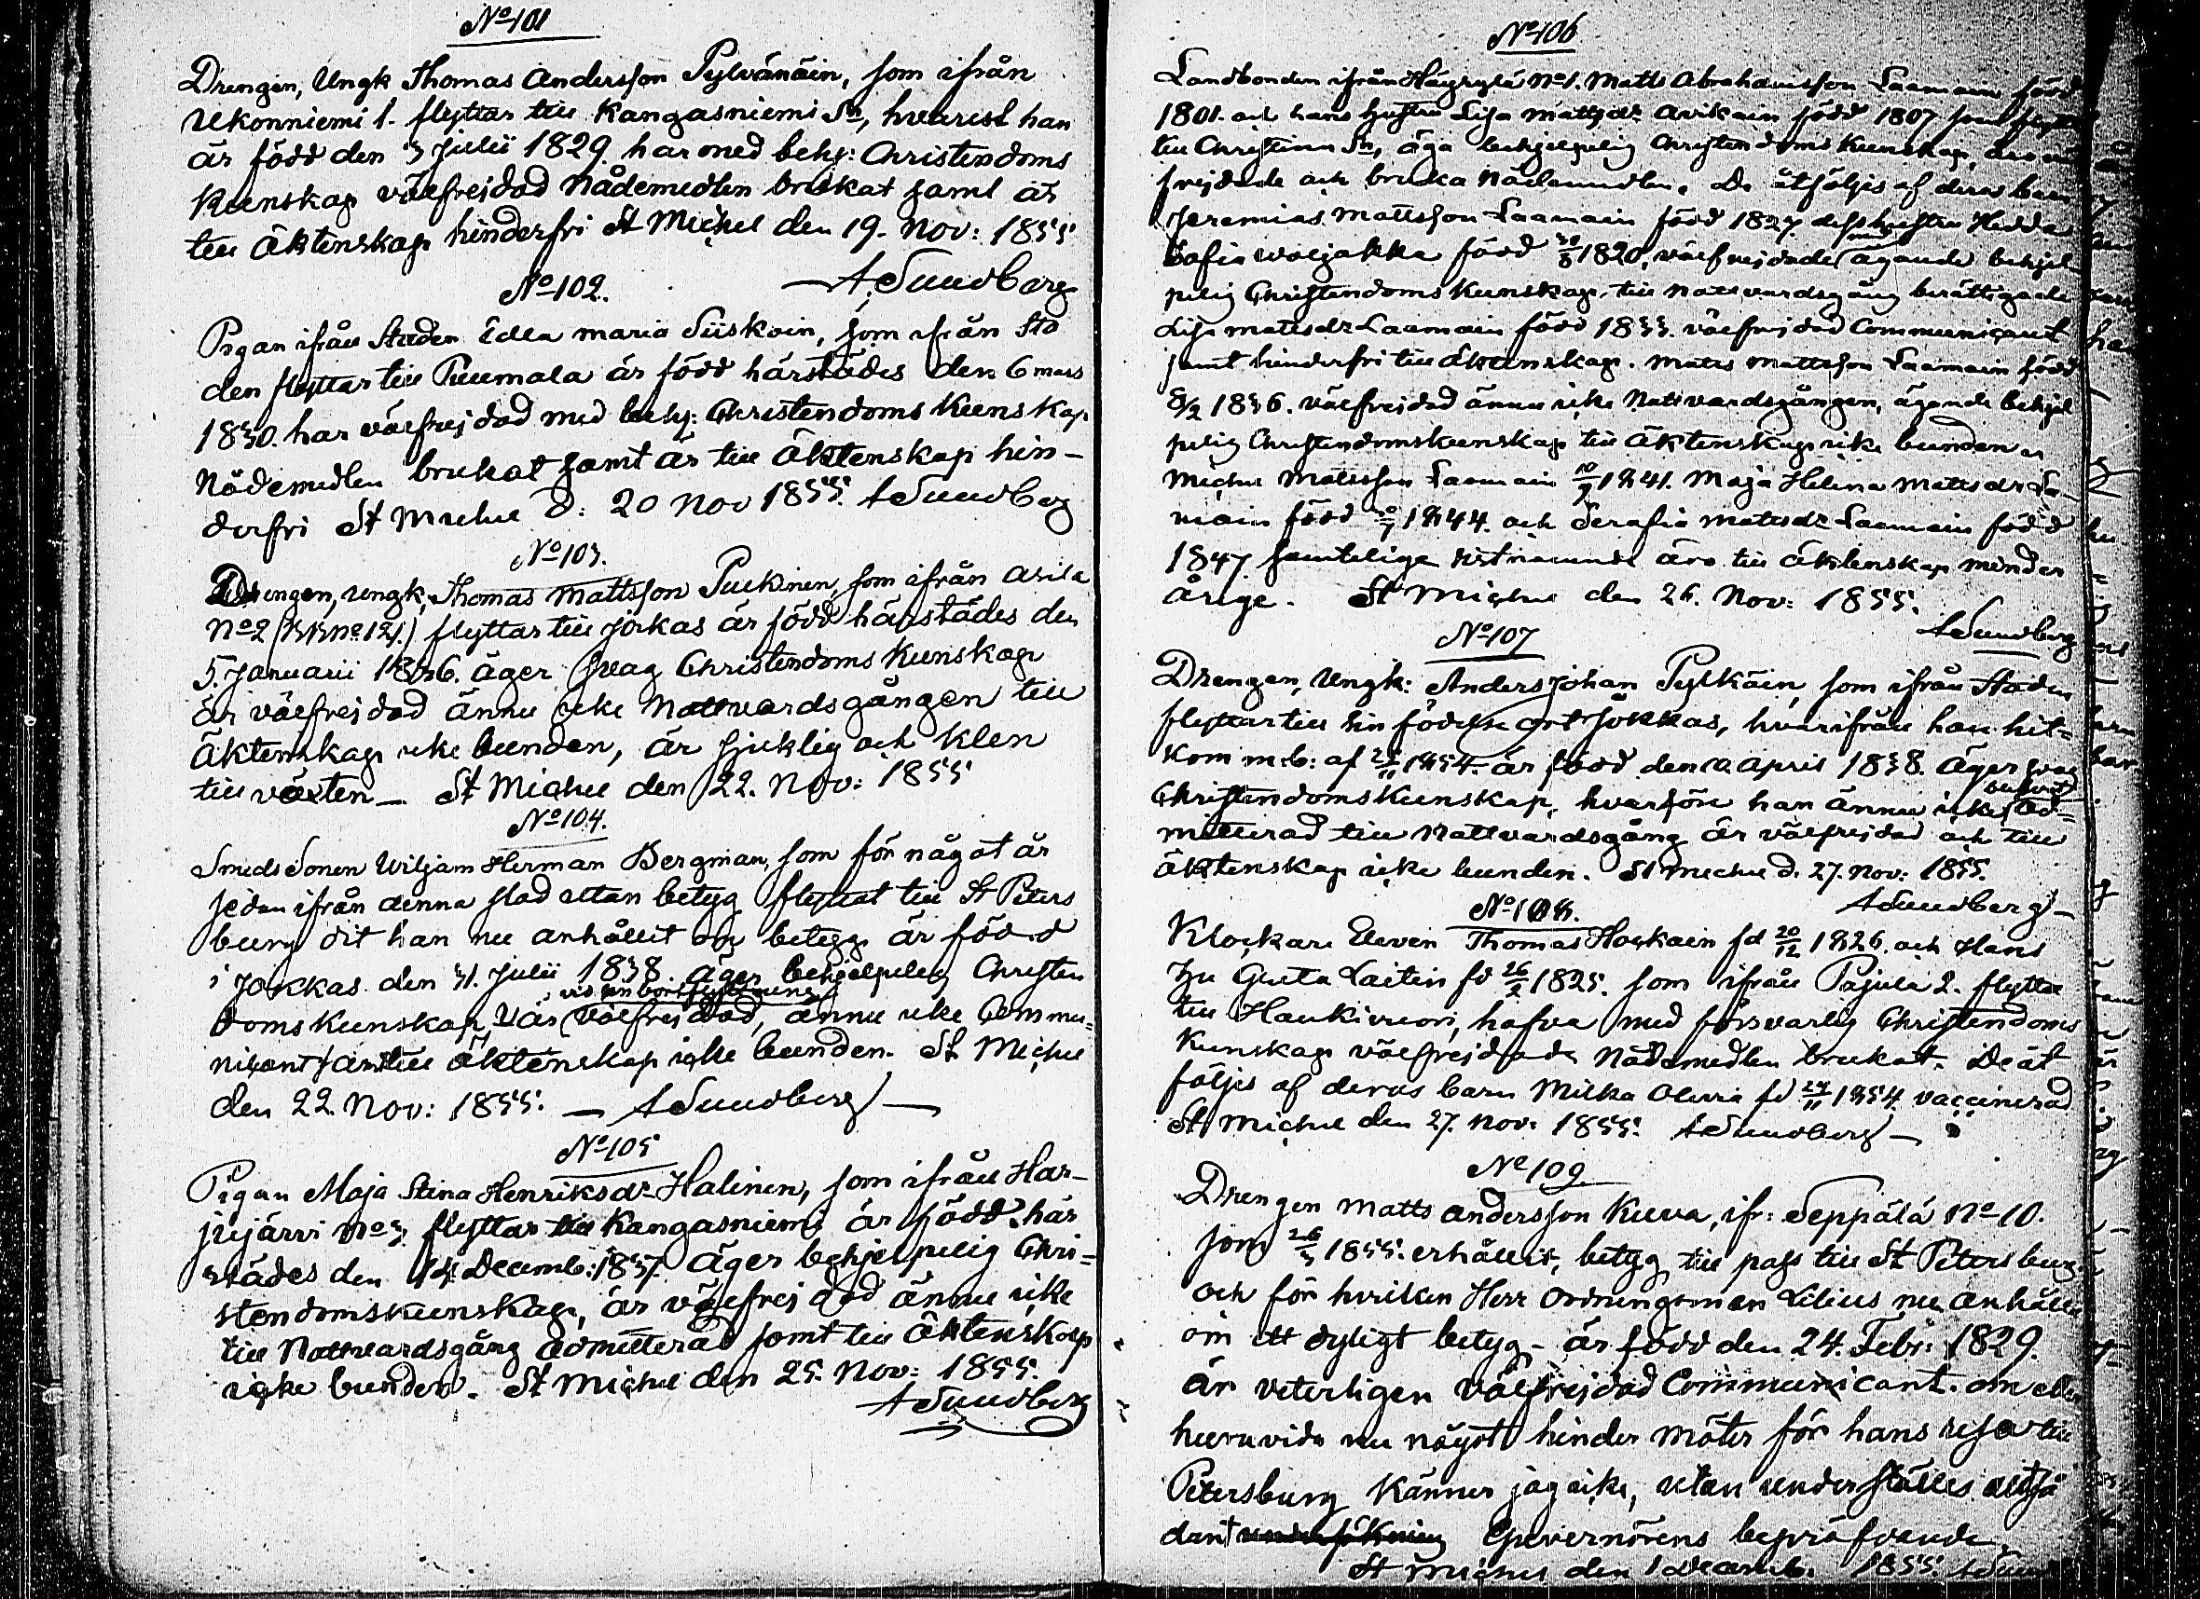 No 101
Drengen, Ungk Thomas Andersson Pylvänäin, som ifrån
Ukonniemi 1. flyttar till Kangasniemi Sn, hvarest han
är född den 3 Julii 1829. har med behj: Christendoms
Kunskap välfrejdad Nådemedlen brukat samt är
till Äktenskap hinderfri St Michel den 19. Nov: 1855
A Sundberg
No 102.
Pigan ifrån Staden Edla Maria Siiskoin, som ifrån Sta
den flyttar till Puumala är född härstädes den 6 Mars
1830. har välfrejdad med behj: Christendoms Kunskap
Nådemedlen brukat samt är till Äktenskap hin-
derfri St Michel d: 20 Nov 1855. A Sundberg
No 103.
Drengen, Ungk, Thomas Mattsson Puckinen, som ifrån Asila
No 2 (KK no 121.) flyttar till Jokkas är född härstädes den
5. Januarii 1836. äger svag Christendoms Kunskap
är välfrejdad ännu icke Nattvardsgången till
Äktenskap icke bunden, är sjuklig och klen
till växten — St Michel den 22. Nov: 1855
No 104.
Smeds Sonen Wiljam Herman Bergman, som för något år
sedan ifrån denna stad utan betyg flyttat till St Peters
burg dit han nu anhållit om betyg är född
i Jokkas den 31. Julii 1838. äger behjelpelig Christen
vid sin bortflyttning
doms Kunskap, var välfrejdad, ännu icke Commu=
nicant samt till äktenskap icke bunden. St Michel
den 22. Nov: 1855. — A Sundberg —
No 105
Pigan Maja Stina Henriksdr Halinen, som ifrån Har-
jujärvi No 3. flyttar till Kangasniemi är född här
städes den 14 Decemb: 1837. äger behjelpelig Chri=
stendomskunskap, är välfrejdad ännu icke
till Nattvardsgång admitterad samt till Äktenskap
icke bunden. St Michel den 25. Nov: 1855.
A Sundberg
No 106
Landbonden ifrån No 1. Matts Abrahamsson Laamain född
1801. och hans hustru Lisa Mattsdr Avikain född 1807 som flytta
till Christina Sn, äga behjelpelig Christendoms Kunskap, äro väl
frejdade och bruka Nådemedlen. De åtföljes af deras barn
Jeremias Mattsson Laamain född 1827. dess hustru Hedda
Sofia Woljakka född 1820, välfrejdade ägande behjel
pelig Christendoms Kunskap, till Nattvardsgång berättigade
Lisa Mattsdr Laamain född 1833. välfrejdad Communicant
samt hinderfri till äktenskap. Matts Mattsson Laamain född
8/2 1836. välfrejdad ännu icke Nattvardsgången, ägande behjel
pelig Christendomskunskap till Äktenskap icke bunden
Michel Mattsson Laamain 10/7 1841. Maja Helena Mattsdr La
main född 1844. och Serafia Mattsdr Laamain född
1847 samtelige sistnämnde äro till äktenskap minder
årige. St Michel den 26. Nov: 1855.
A Sundberg
No 107
Drengen, Ungk: Anders Johan Pylkäin, som ifrån Staden
flyttar till sin födelse ort Jokkas, hvarifrån han hit=
kom m. b: af 1854. är född den 10. April 1838. äger svag
Christendoms Kunskap, hvarföre han ännu icke ad=
mitterad till Nattvardsgång är välfrejdad och till
äktenskap icke bunden. St Michel d. 27. Nov: 1855.
A Sundberg —
No 108.
Klockare Eleven Thomas Hockain fd 20/12 1826. och Hans
Hu Greta Laitin fd 26/2 1825. som ifrån Pajula 2. flytta
till Haukivuori, hafva med försvarlig Christendoms
Kunskap välfrejdade Nådemedlen brukat. De åt
följes af deras barn Milka Olivia fd 24/11 1854 vaccinerad
St Michel den 27. Nov. 1855. A Sundberg —
No 109.
Drengen Matts Andersson Kuva, ifr: Seppälä No 10.
som 26/3 1855. erhållit, betyg till pass till St Petersburg
och för hvilken Herr Ordningsman Lilius nu anhåller
om ett dyligt betyg — är född den 24. Febr: 1829.
är veterligen välfrejdad Communicant. om eller
huruvida nu något hinder möter för hans resa till
Petersburg känner jag icke, utan underställes
dant undersökning Guvernörens bepröfvande
St Michel den 1 Decemb. 1855.